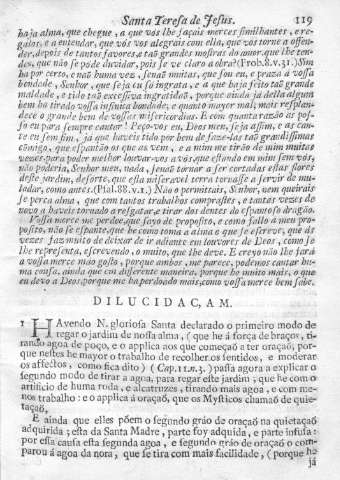 Santa Teresa de Jesus. 119
haja alma, que chegue, a que vós lhe façais merces similhantes, e re-
galos, e a entendar, que vós vos alegrais com ella, que vós torne a offen-
der, depois de tantos favores, e taõ grandes mostras do amor, que lhe ten-
des, que não se póde duvidar, pois se ve claro a obra? (Prob.8.v.31.) Sim
ha por certo, e naõ huma vez, senaõ muitas, que sou eu, e praza á vossa
bondade, Senhor, que seja eu só ingrata, e a que haja feito taõ grande
maldade, e tido taõ excessiva ingratidaõ, porque ainda já della algum
bem ha tirado vossa infinita bondade, e quanto mayor mal, mais resplan-
dece o grande bem de vossas misericordias. E com quanta razão as pos-
so eu para sempre cantar! Peço-vos eu, Deos meu, seja assim, e as can-
te eu sem fim, já que haveis tido por bem de faze-las taõ grandissimas
cõmigo, que espantão os que as vem, e a mim me tiraõ de mim muitas
vezes, para poder melhor louvar-vos a vós, que estando em mim sem vós,
não poderia, Senhor meu, nada, senaõ tornar a ser cortadas estas flores
deste jardim, desorte, que esta miseravel terra tornasse a servir de mu-
ladar, como antes. (Psal.88.v.1.) Não o permittais, Senhor, nem queirais
se perca alma, que com tantos trabalhos comprastes, e tantas vezes de
novo a haveis tornado a resgatar, e tirar dos dentes do espantoso dragão.
Vossa merce me perdoe, que sayo de proposito, e como fallo a meu pro-
posito, não se espante, que he como toma a alma o que se escreve, que ás
vezes faz muito de deixar de ir adiante em louvores de Deos, como se
lhe representa, escrevendo, o muito, que lhe deve. E creyo não lhe fará
a vossa merce máo gosto, porque ambos, me parece, podemos cantar hu-
ma cousa, ainda que em differente maneira, porque he muito mais, o que
eu devo a Deos, porque me ha perdoado mais, como vossa merce bem sabe.
DILUCIDAC,AM.
1 HAvendo N. gloriosa Santa declarado o primeiro modo de
regar o jardim de nossa alma, (que he á força de braços, ti-
rando agoa de poço, e o applica aos que começaõ a ter oraçaõ, por-
que nestes he mayor o trabalho de recolher os sentidos, e moderar
os affectos, como fica dito) (Cap.11.n.3.) passa agora a explicar o
segundo modo de tirar a agoa, para regar este jardim; que he com o
artificio de huma roda, e alcatruzes, tirando mais agoa, e com me-
nos trabalho: e o applica á oraçaõ, que os Mysticos chamaõ de quie-
taçaõ,
E ainda que elles põem o segundo gráo de oraçaõ na quietaçaõ
adquirida; esta da Santa Madre, parte soy adquida, e parte infusa:
por essa causa esta segunda agoa, e segundo gráo de oraçaõ o com-
parou á agoa da nora, que se tira com mais facilidade, (porque he
já